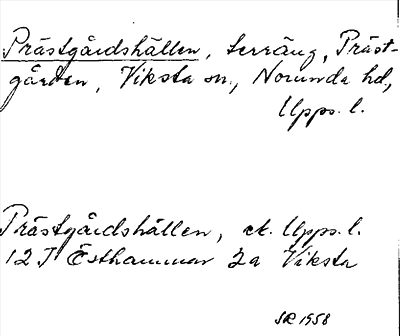 Prästgårdshällen, terräng, Präst-
gården, Viksta sn., Norunda hd,
Upps. l.
Prästgårdshällen, ek. Upps. l.
12 I Östhammar 2a Viksta
SR 1958